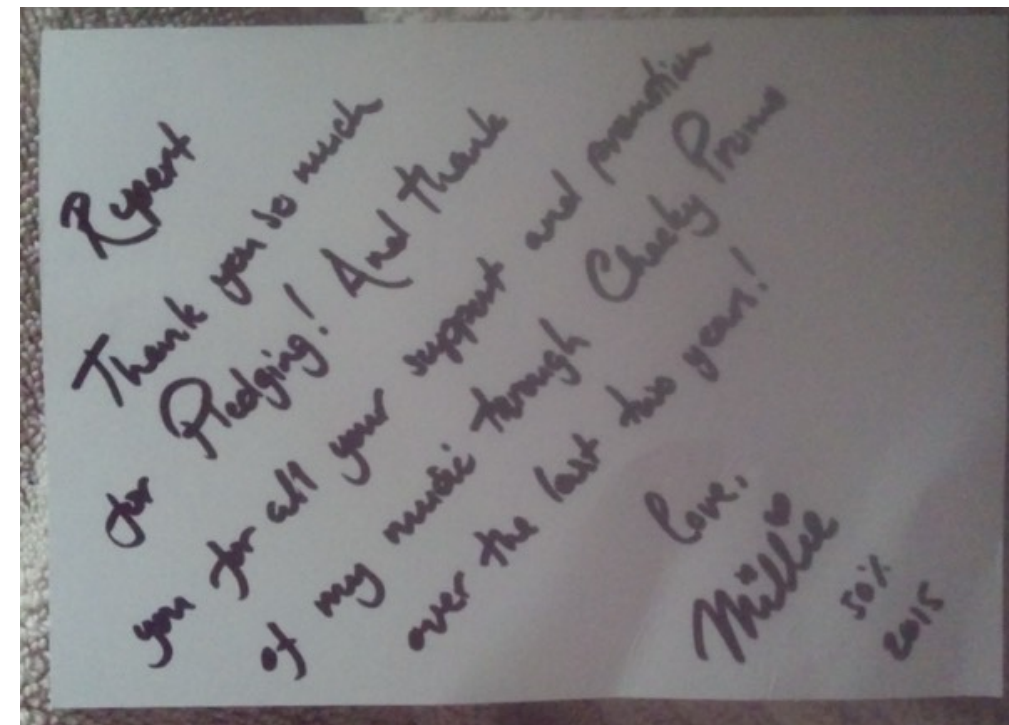 Rupert
Thank you so much
for Pledging! And thank
you for all your support and promotion
of my music through Cheeky Promo
over the last two years!
Love,
Millie
50%
2015